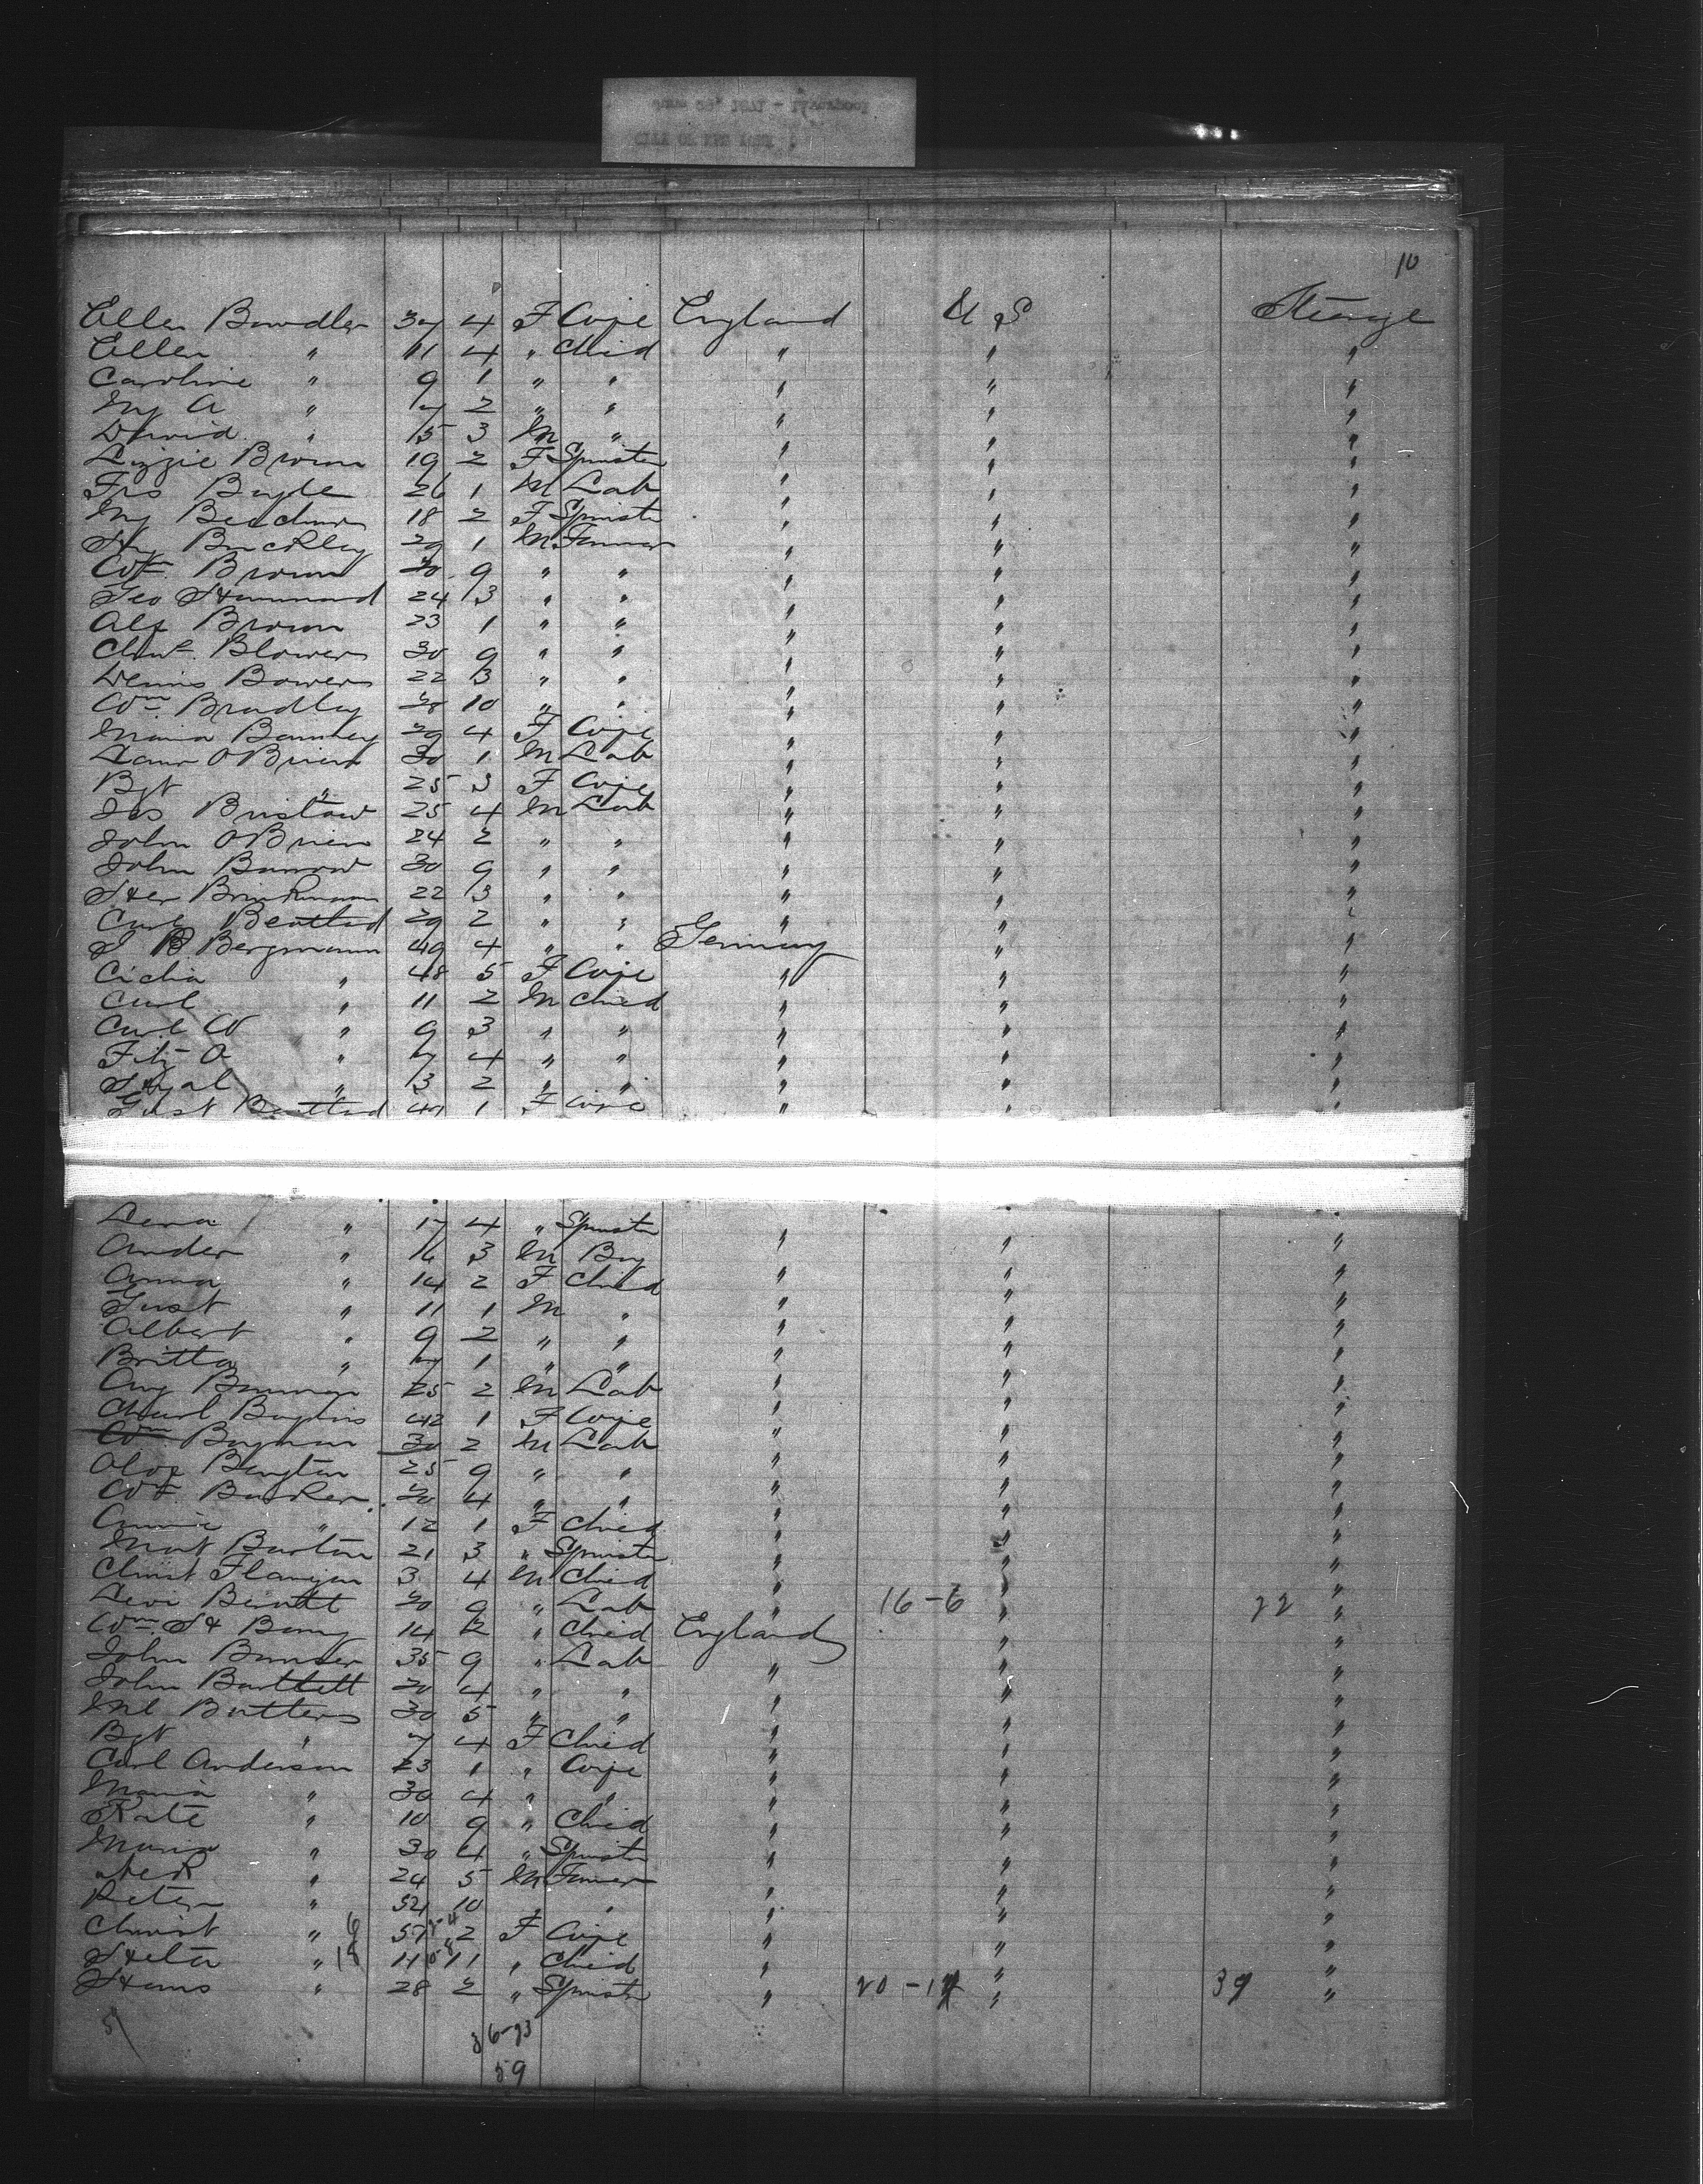 10
Ellen Bowdler 37 4 F Wife England U S Steerage
Ellen " 11 4 " Child " " "
Caroline " 9 1 " " " " "
My A " 7 2 " " " " "
David " 5 3 M " " " "
Lizzie Brown 19 2 F Spinster " " "
Frs Boyle 26 1 M Lab " " "
My 18 2 F Spinster " " "
Hy Buckley 29 1 M Farmer " " "
Wm Brown 30 9 " " " " "
Geo Hammond 24 3 " " " " "
Alf Brown 23 1 " " " " "
Chas Blowers 30 9 " " " " "
Dennis Bowers 22 3 " " " " "
Wm Bradley 28 10 " " " " "
Maria 29 4 F Wife " " "
O'Brien 30 1 M Lab " " "
Bgt " 25 3 F Wife " " "
Jas Bristow 25 4 M Lab " " "
John O'Brien 24 2 " " " " "
John Barrow 30 9 " " " " "
Brinkmann 22 3 " " " " "
Carl 29 2 " " " " "
J B Bergmann 49 4 " " Germany " "
" 48 5 F Wife " " "
Carl " 11 2 M Child " " "
Carl W " 9 3 " " " " "
Fitz O " 7 4 " " " " "
" 3 2 " " " " "
1 F Wife " " "
Lena " 17 4 " Spinster
Ander " 16 3 M Boy " " "
Anna " 14 2 F Child " " "
Gust " 11 1 M " " " "
Albert " 9 2 " " " " "
Britta " 7 1 " " " " "
Aug 25 2 M Lab " " "
42 1 F Wife " " "
Wm Bagman 30 2 M Lab " " "
Olof Bengton 25 9 " " " " "
Wm Barker 30 4 " " " " "
Annie " 12 1 F Child " " "
Mart Barton 21 3 " Spinster " " "
Christ Flanigan 3 4 M Child " " "
Levi 30 9 " Lab " 16-6 " 22 "
Wm H Barry 14 2 " Child England " "
John 35 9 " Lab " " "
John Bartlett 30 4 " " " " "
Ml Butters 30 5 " " " " "
Bgt " 7 4 F Child " " "
Carl Anderson 23 1 " Wife " " "
Maria " 30 4 " " " " "
Kate " 10 9 " Child " " "
Maria " 30 4 " Spinster " " "
" 24 5 M Farmer " " "
Peter " 54 10 " " " " "
Christ " 6 57 2 F Wife " " "
" 18 11 11 " Child " " "
Hans " 28 2 " Spinster " 20-17 " 39 "
51
36-23
59